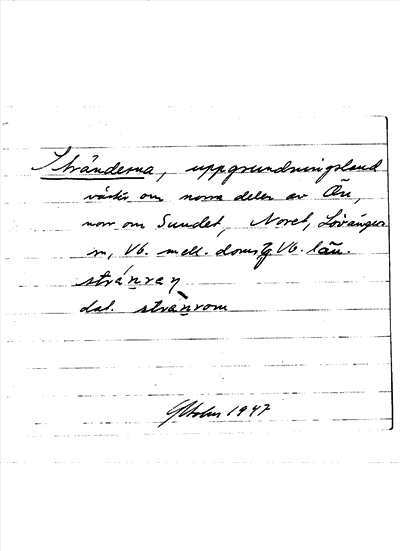 Stränderna, uppgrundningsland
väster om norra delen av Ön,
norr om Sundet, Noret, Lövångers
sn, Vb. mell. doms Vb. län.
stránran
dat. strànrom
GHolm 1947